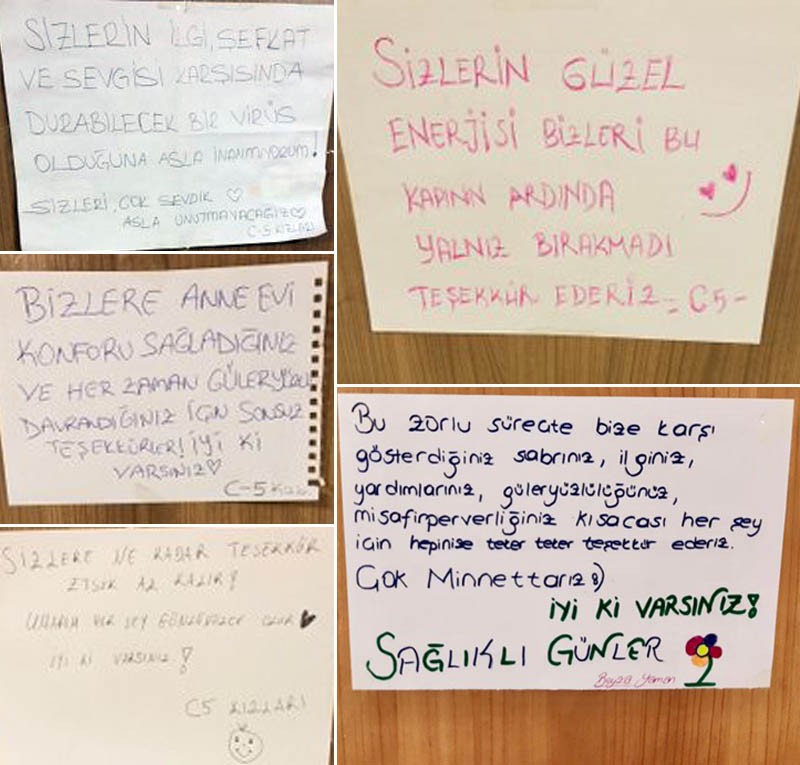 SİZLERİN İLGİ, ŞEFKAT
VE SEVGİSİ KARŞISINDA
DURABİLECEK BİR VİRÜS
OLDUĞUNA ASLA İNANMIYORUM!
SİZLERİ ÇOK SEVDİK ♡
ASLA UNUTMAYACAĞIZ ♡
C-5 KIZLARI
SİZLERİN GÜZEL
ENERJİSİ BİZLERİ BU
KAPININ ARDINDA
YALNIZ BIRAKMADI
TEŞEKKÜR EDERİZ - C5 -
BİZLERE ANNE EVİ
KONFORU SAĞLADIĞINIZ
VE HER ZAMAN GÜLERYÜZLÜ
DAVRANDIĞINIZ İÇİN SONSUZ
TEŞEKKÜRLER! İYİ Kİ
VARSINIZ ♡
C-5
Bu zorlu süreçte bize karşı
gösterdiğiniz sabrınız, ilginiz,
yardımlarınız, güleryüzlülüğünüz,
misafirperverliğiniz kısacası her şey
için hepinize teker teker teşekkür ederiz.
Çok Minnettarız :)
İYİ Kİ VARSINIZ!
SAĞLIKLI GÜNLER
Beyza Yaman
SİZLERE NE KADAR TEŞEKKÜR
ETSEK AZ KALIR!
UMARIM HER ŞEY GÖNLÜNÜZCE OLUR ♥
İYİ Kİ VARSINIZ!
C5 KIZLARI